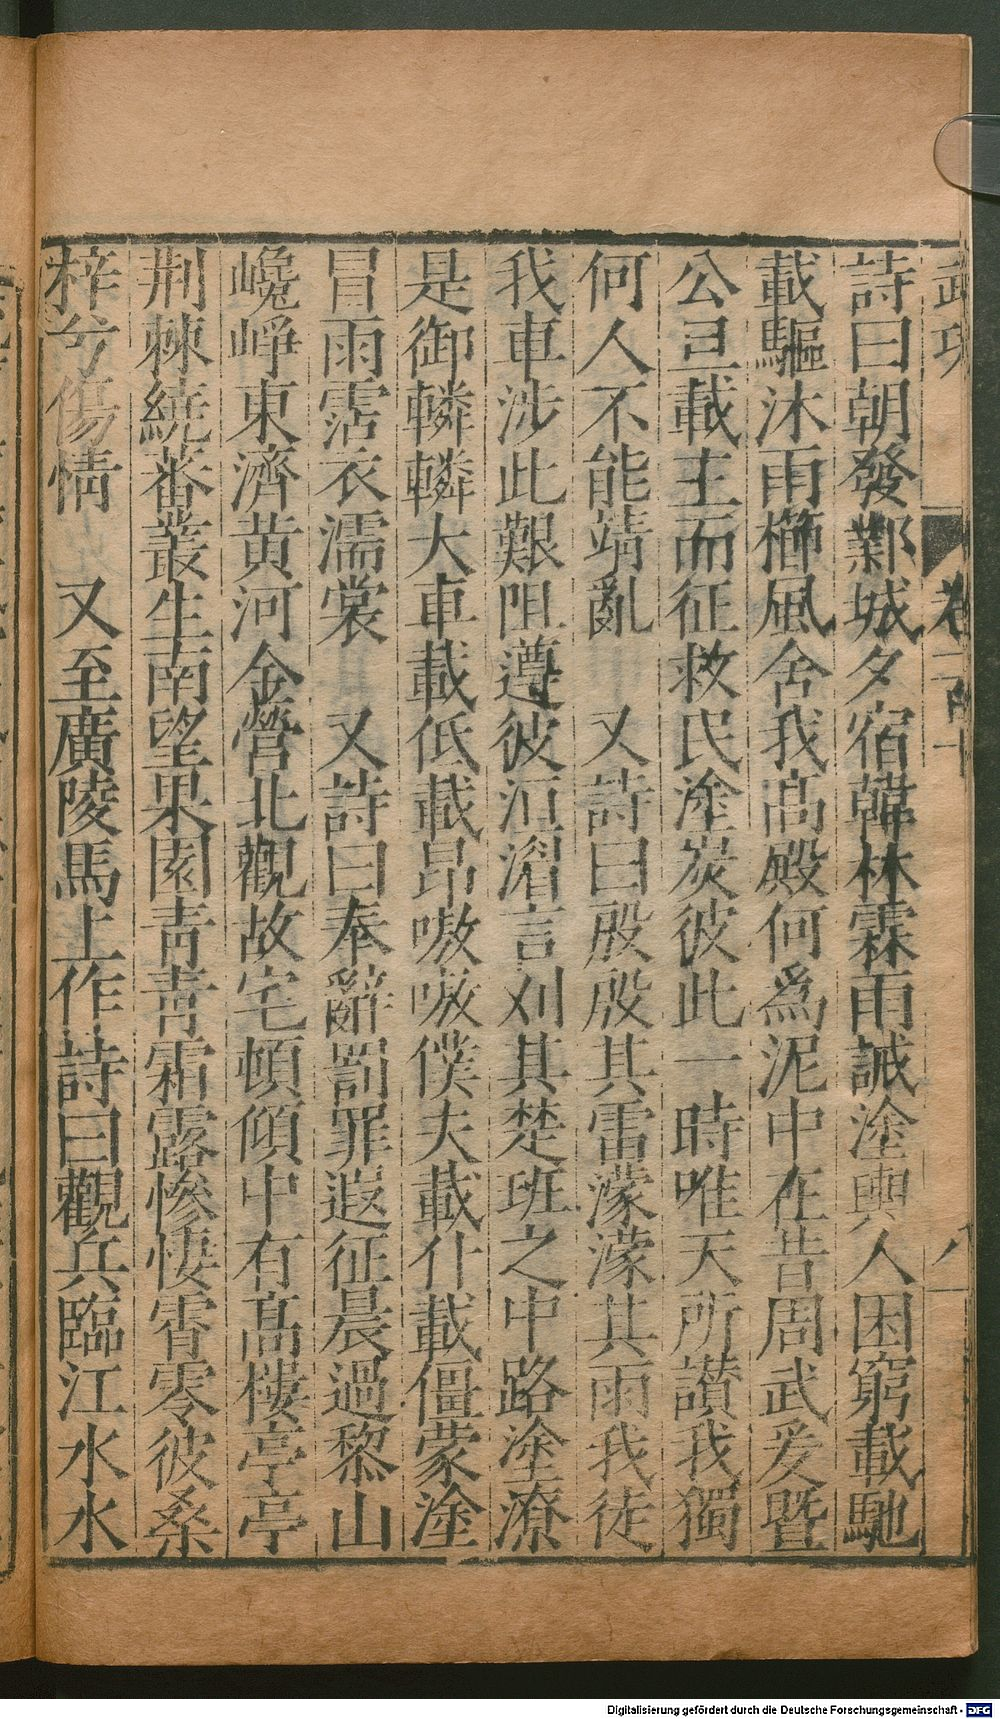 詩曰朝發鄴城夕宿韓林霖雨誡塗輿人困窮載馳
載驅沐雨櫛風舍我高殿何爲泥中在昔周武爰曁
公旦載主而征救民塗炭彼此一時唯天所讃我獨
何人不能靖亂　又詩曰殷殷其雷濛濛其雨我徒
我車涉此艱阻遵彼洹湄言刈其楚班之中路塗潦
是御轔轔大車載低載昂嗷嗷僕夫載仆載僵蒙塗
冒雨霑衣濡裳　又詩曰奉辭罰罪遐征晨過黎山
巉崢東濟黄河金營北觀故宅頓傾中有髙樓亭亭
荆棘繞蕃叢生南望果園青青霜露慘悽宵零彼桑
梓兮傷情　又至廣陵馬上作詩曰觀兵臨江水水
武功
卷二百十
八
Digitalisierung gefördert durch die Deutsche Forschungsgemeinschaft - DFG